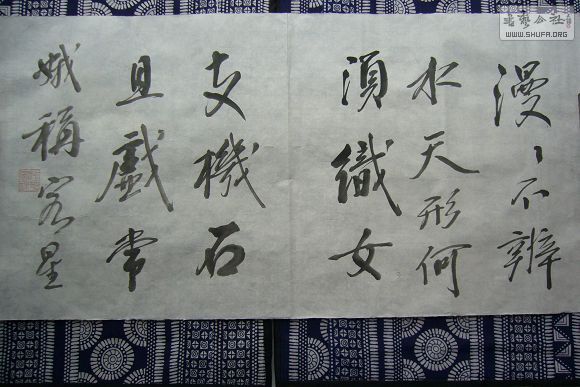 漫〻不辨
水天形何
須織女
支機石
且戲常
娥稱客星
WWW.SHUFA.ORG